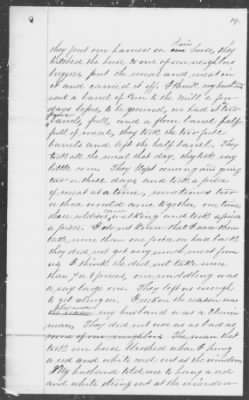 19.
they put our harness on his horse, they
hitched the horse to one of our neighbors
buggies, put the meal and meat in
it and carried it off. I think my husband
sent a barrel of corn to the Mill a few
days before, to be ground, we had it two
barrels, full, and a flour barrel half
full of meal, they took the two full
barrels and left the half barrel. They
took all the meat that day, they took very
little corn. They kept coming on going
two or three days and took a piece
of meat at a time, sometimes two
or three would come together one time
three soldiers came walking and took apiece
a piece. I do not know that I saw them
take more than one piece on horse back
they did not get any meal and meat from
us I think. They did not take more
than 7 or 8 pieces, one middling was
a very large one. They left us enough
to get along on. I reckon the reason was
because my husband was a Union
man. They did not use us as bad as
some of our neighbors. The man that
took our horse blushed when I hung
a red and white rag out at the window
My husband told me to hang a red
and white string out at the window